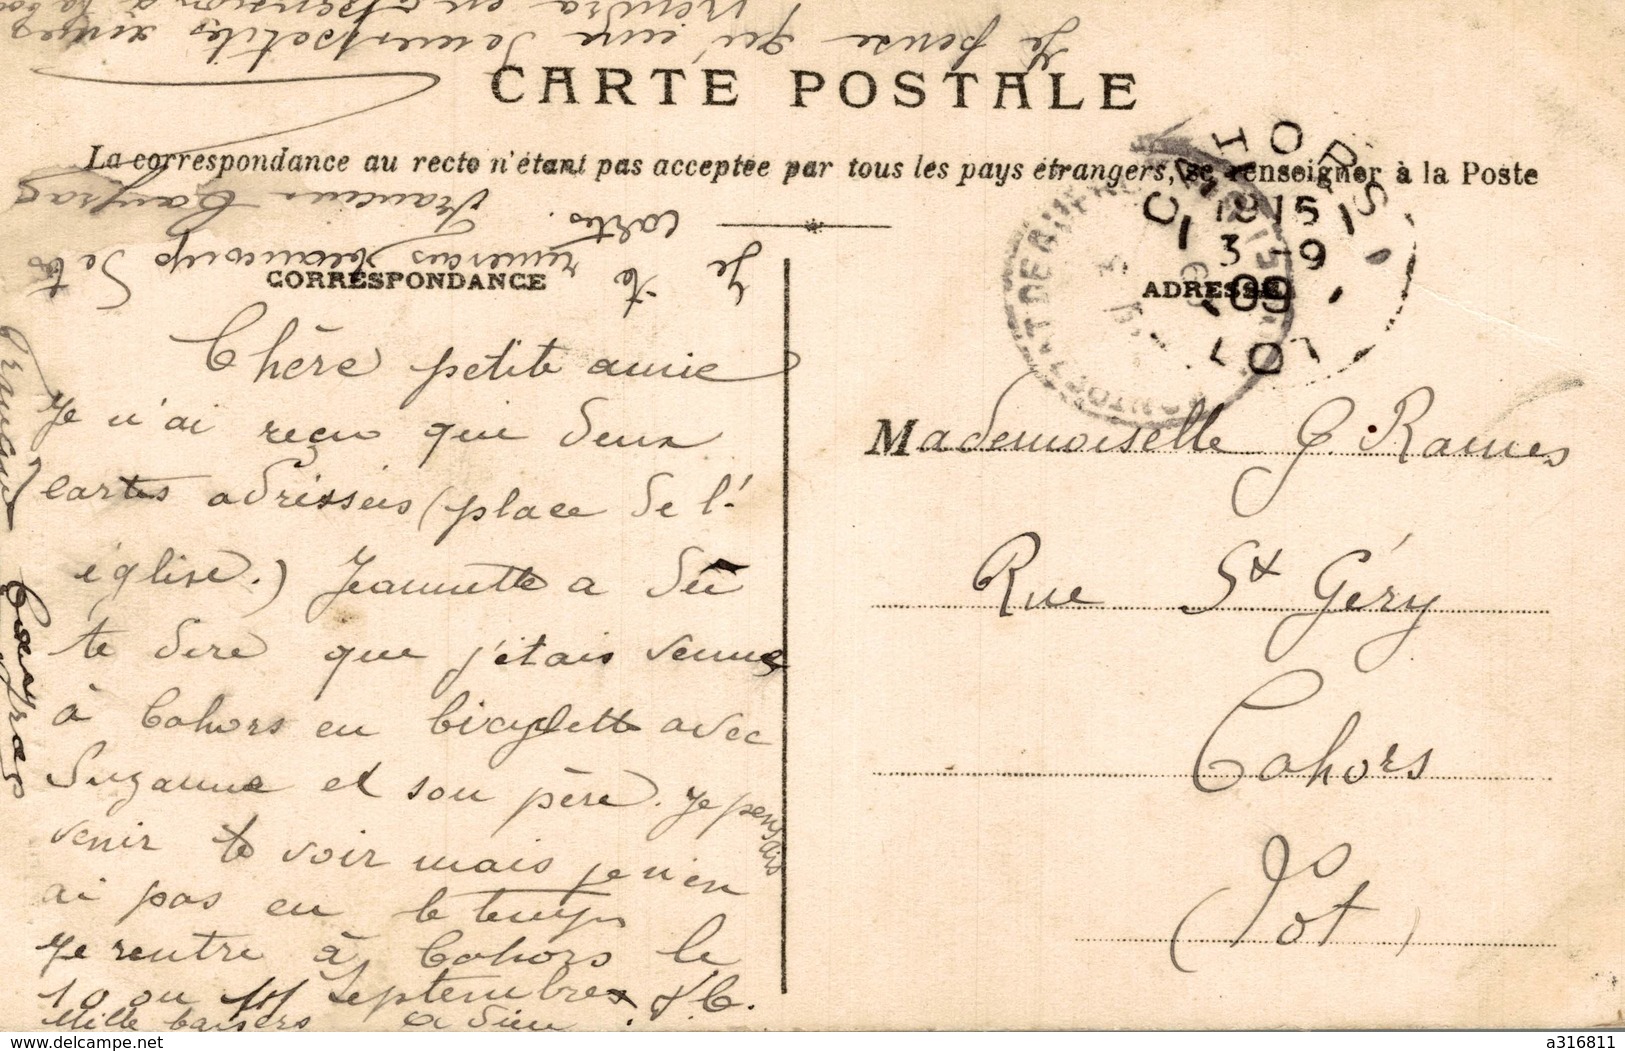 Je pense qu'une de mes petites
CARTE POSTALE
La correspondance au recto n'étant pas acceptée par tous les pays étrangers, se renseigner à la Poste
CORRESPONDANCE
ADRESSE
CAHORS
1915
3 -9
09
LOT
Chère petite amie
Je n'ai reçu que deux
cartes adresseis (place de l'
église.) Jeannette a dû
te dire que j'étais venue
à Cahors en bicyclette avec
Suzanne et son père. Je pensais
venir te voir mais je n'en
ai pas eu le temps
Je rentre à Cahors le
10 ou 11 Septembre
Mille baisers adieu
Je te remercie beaucoup de tes
cartes. Francine Cayrac
Cayrac
Mademoiselle G. Rames
Rue St Géry
Cahors
(Lot)
Delcampe.net
a316811